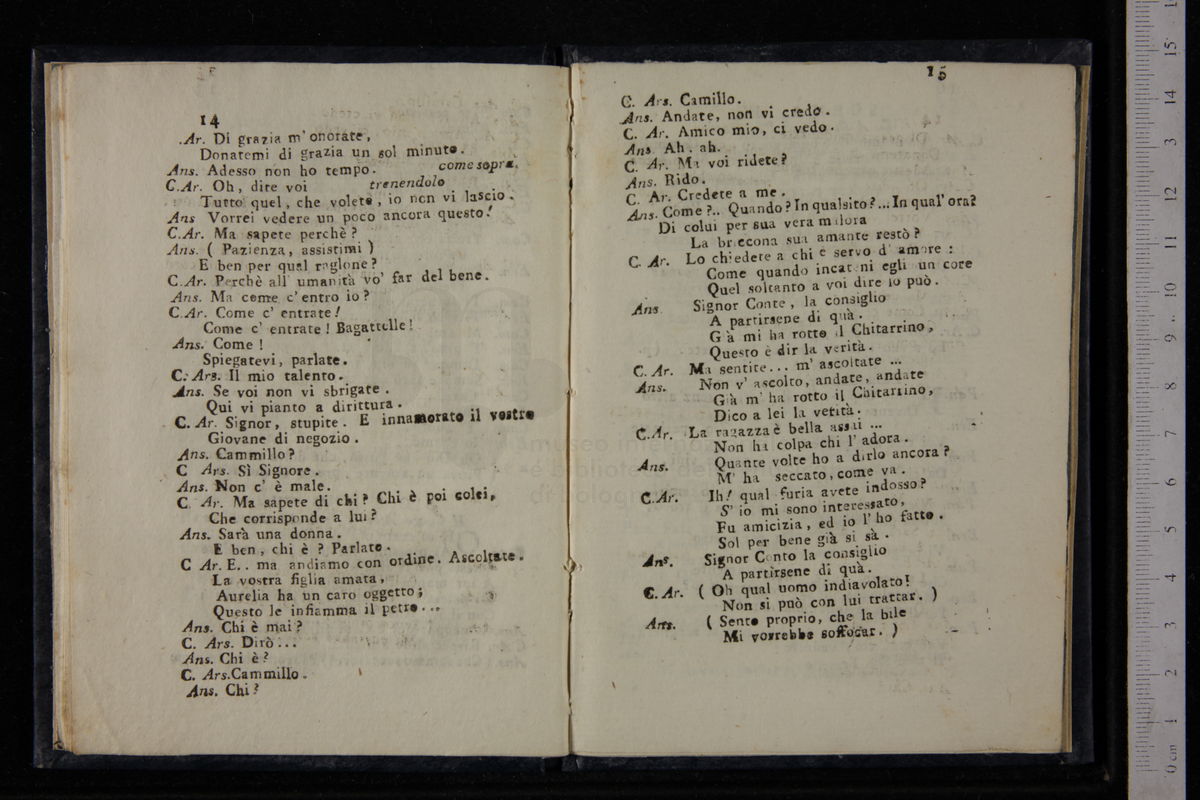 14
.Ar. Di grazia m' onorate,
Donatemi di grazia un sol minuto.
Ans. Adesso non ho tempo. come sopra.
C.Ar. Oh, dite voi trenendolo
Tutto quel, che volete, io non vi lascio.
Ans Vorrei vedere un poco ancora questo!
C.Ar. Ma sapete perchè?
Ans. ( Pazienza, assistimi )
E ben per qual raglone?
C.Ar. Perchè all' umanità vo' far del bene.
Ans. Ma come c' entro io?
C.Ar. Come c' entrate!
Come c' entrate! Bagattelle!
Ans. Come!
Spiegatevi, parlate.
C. Ars. Il mio talento.
Ans. Se voi non vi sbrigate.
Qui vi pianto a dirittura.
C. Ar. Signor, stupite. E innamorato il vostro
Giovane di negozio.
Ans. Cammillo?
C Ars. Sì Signore.
Ans. Non c' è male.
C. Ar. Ma sapete di chi? Chi è poi colei,
Che corrisponde a lui?
Ans. Sarà una donna.
E ben, chi è? Parlate.
C Ar. E.. ma andiamo con ordine. Ascoltate.
La vostra figlia amata,
Aurelia ha un caro oggetto;
Questo le infiamma il petto...
Ans. Chi è mai?
C. Ars. Dirò...
Ans. Chi è?
C. Ars. Cammillo.
Ans. Chi?
15
C. Ars. Camillo.
Ans. Andate, non vi credo.
C. Ar. Amico mio, ci vedo.
Ans. Ah. ah.
C. Ar. Ma voi ridete?
Ans. Rido.
C. Ar. Credete a me.
Ans. Come?.. Quando? In qual sito?... In qual' ora?
Di colui per sua vera malora
La briccona sua amante restò?
C. Ar. Lo chiedete a chi è servo d' amore:
Come quando incateni egli un core
Quel soltanto a voi dire io può.
Ans. Signor Conte, la consiglio
A partirsene di quà.
Già mi ha rotto il Chitarrino,
Questo è dir la verità.
C. Ar. Ma sentite... m' ascoltate ...
Ans. Non v' ascolto, andate, andate
Già m' ha rotto il Chitarrino,
Dico a lei la verità.
C.Ar. La ragazza è bella assai ...
Non ha colpa chi l' adora.
Ans. Quante volte ho a dirlo ancora?
M' ha seccato, come va.
C.Ar. Ih! qual furia avete indosso?
S' io mi sono interessato,
Fu amicizia, ed io l' ho fatto.
Sol per bene già si sà.
Ans. Signor Conto la consiglio
A partirsene di quà.
C. Ar. ( Oh qual uomo indiavolato!
Non si può con lui trattar. )
Ans. ( Sento proprio, che la bile
Mi vorrebbe soffocar. )